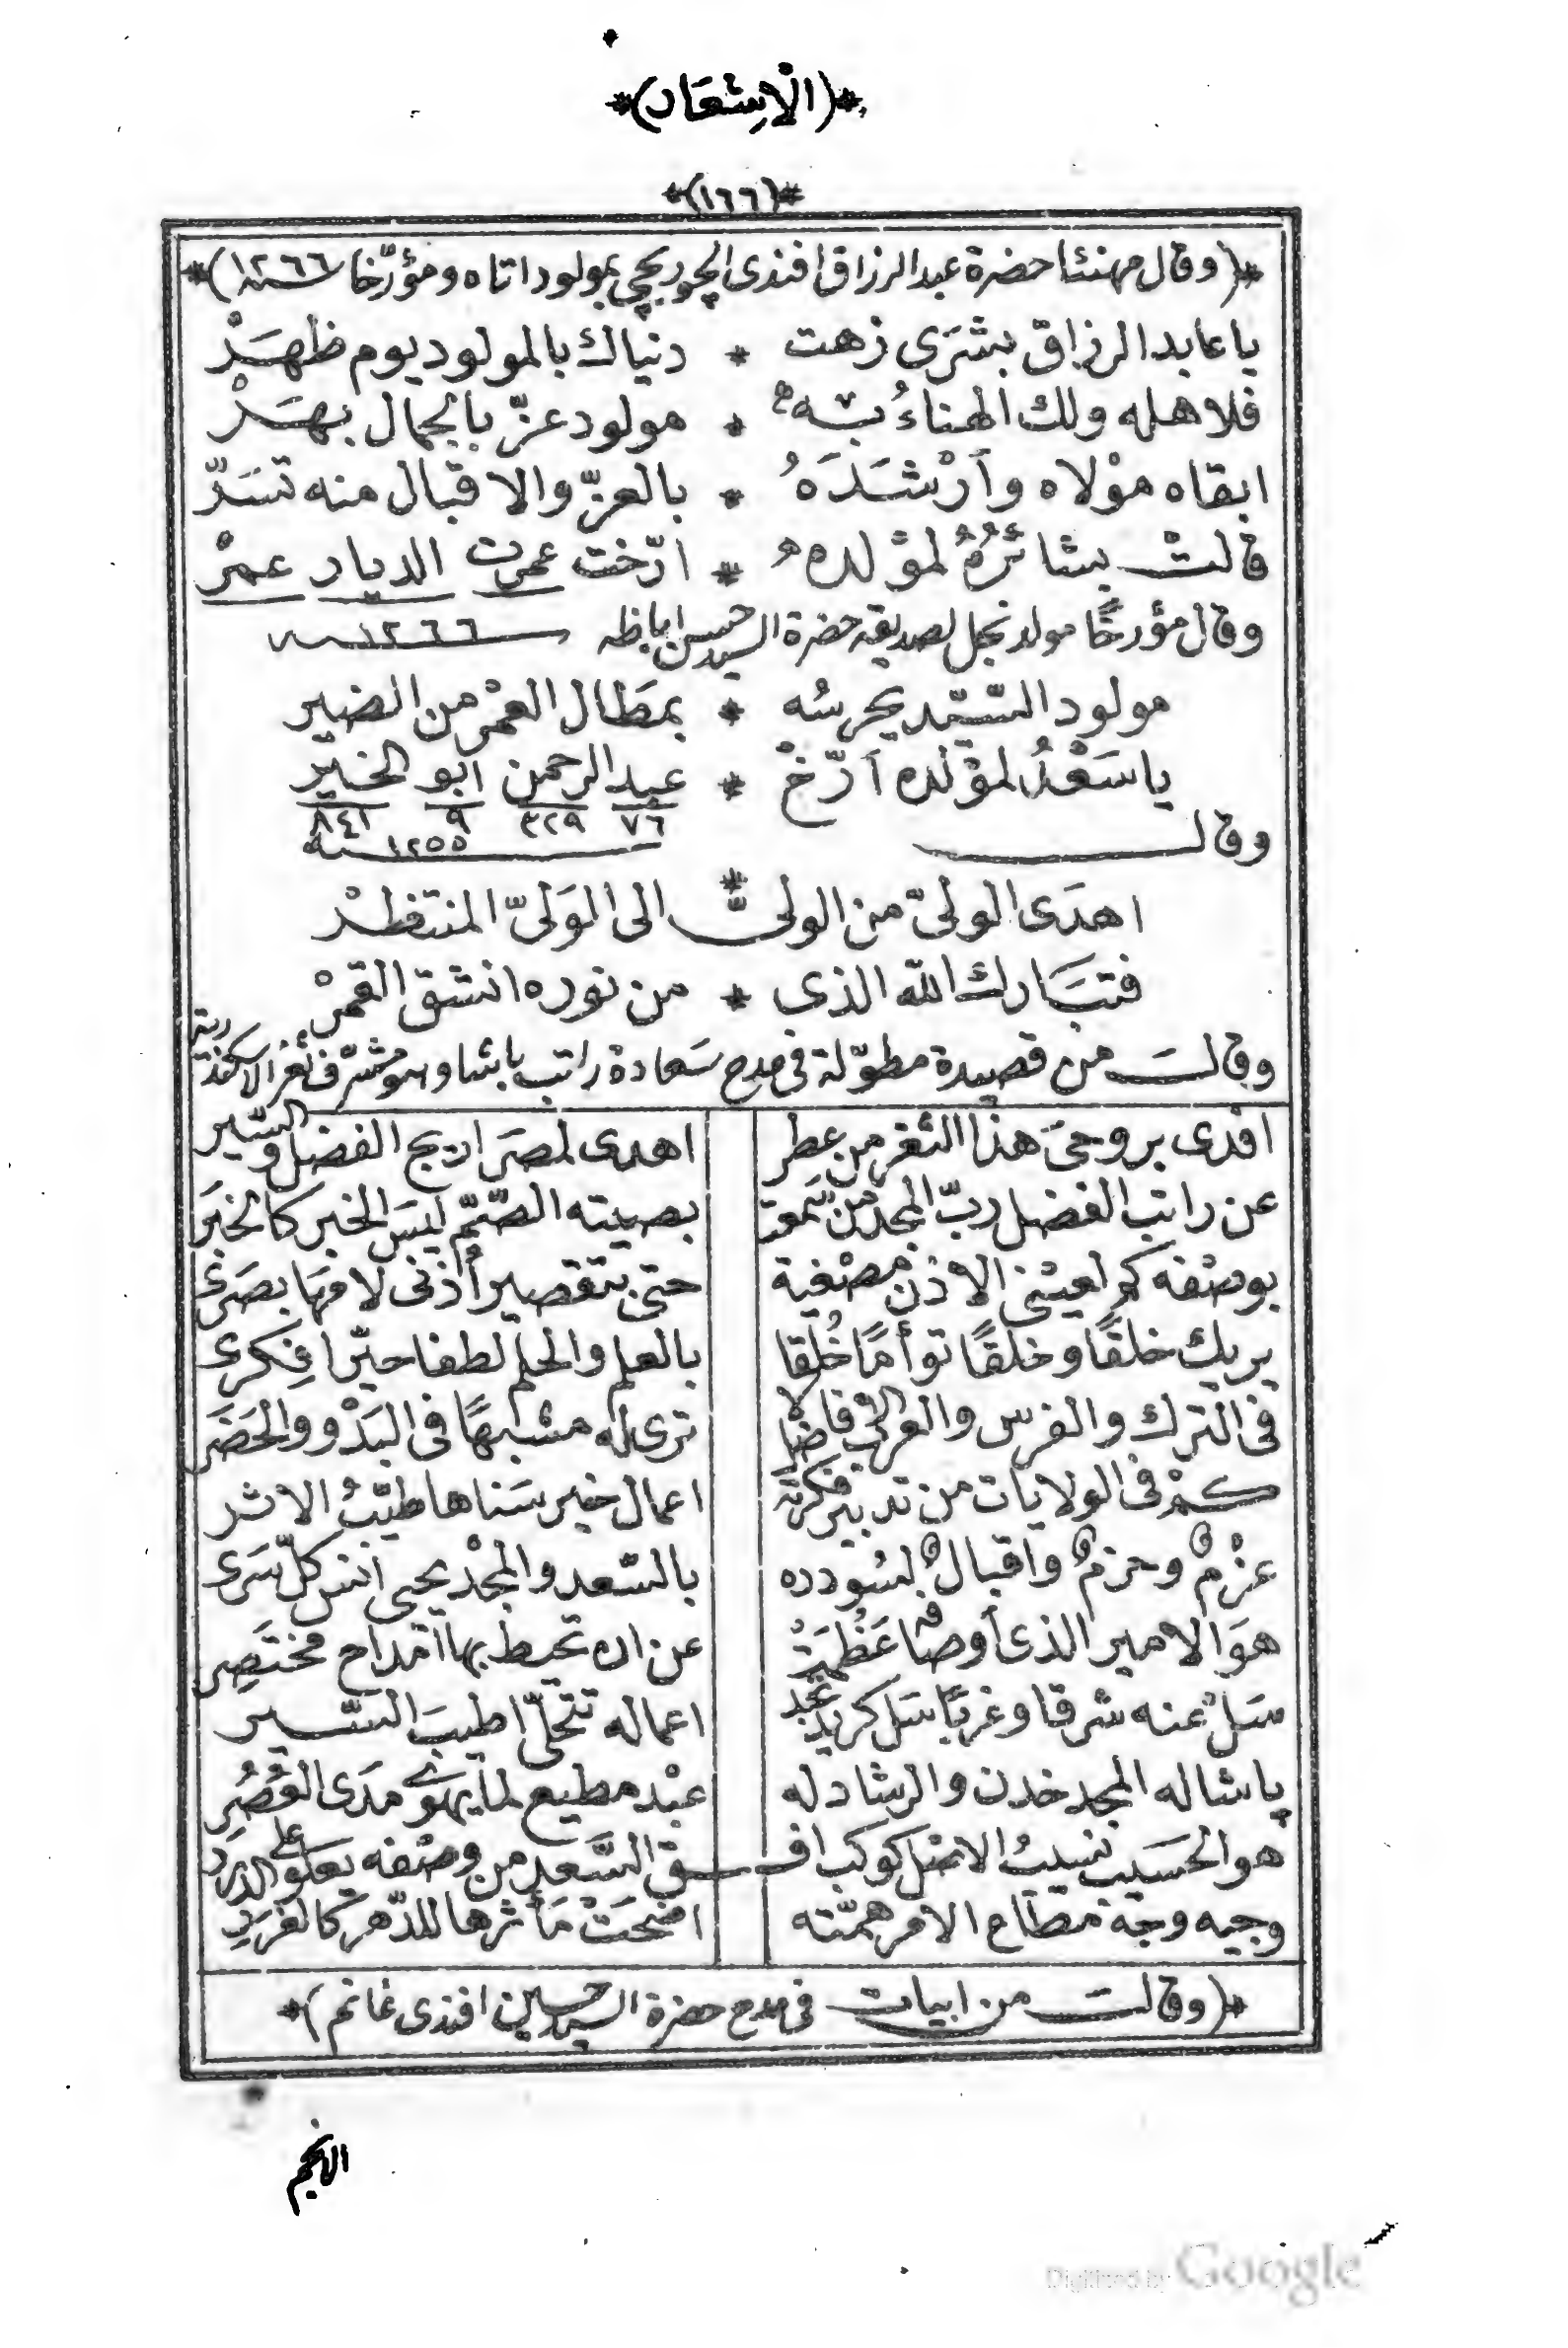 *(الْاِشْعَار)*
*(١٦٦)*
*(وقال مهنئا حضرة عبد الرزاق افندى الچوربجى بمولود اتاه ومؤرّخا سنة ١٢٦٦)*
يا عابد الرزاق بشرَى زهت * دنياك بالمولود يوم ظهَرْ
فلاهله ولك الهناءُ به * مولود عزّ بالجمال بهَرْ
ابقاه موْلاه وأرْشَدَهُ * بالعزّ والاقبال منه تسَرّ
قالتْ بشائرُهُ لموْلده * ارّخت عمرت الديار عمرْ
وقال مؤرخًا مولد نجل لصديقه حضرة السيد حسن اباظه سنة ١٢٦٦
مولود السّيّد يحرسُه * بمطَال العمْر من الضير
يا سَعْدُ لموْلده أرّخْ * عبد الرحمن ابو الخيْر
٧٦ ٣٢٩ ٩ ٨٤١
وقال سنة ١٢٥٥
اهدَى الولىّ من الولىّ * الى الوَلىّ المنتظرْ
فتبَارك الله الذى * من نوره انشق القمرْ
وقال من قصيدة مطوّلة فى مدح سَعادة راتب باشا وهو مشرّف ثغر الاسكندرية
افدى بروحىَ هذا الثغر من عطر اهدى لمصرَ اريج الفضل والسّير
عن راتب الفضل ربّ المجد من سمعت بصيته الصّمّ ليسَ الخبر كالخبَر
بوصْفه كم لعيْنى الاذن مصْغية حتى بتقصير أذنى لامهَا بصَرى
يريك خلقًا وخلقًا توأمًا خُلقا بالعلم والحلم لطفا حيّرا فِكرى
فى الترك والفرس والعرب الاُلى فاضلا ترى له مشبهًا فى البَدْو والحَضَر
كمْ فى الولايات من تدبير فكرته اعمال خير سَناها طيّبُ الاثر
عزْمٌ وحزمٌ واقبالٌ لسُودده بالسّعد والمجْد يحيى انس كلّ سَرى
هوَ الامير الذى أوصافه عَظُمَتْ عن ان تحيط بها امْداح مختَصِر
سَلْ عنه شرقا وغربًا سَل كريد تجد اعماله تتحلّى اطيبَ السّير
باشا له المجد خدن والرشاد له عبْد مطيع لما يهوى مدَى العُصُر
هو الحَسيبُ نسيبُ الاصْل كوكب افق السَّعد من وصْفه يعلو على الدرر
وجيه وجهٍ مطَاع الامر همّته اضْحَتْ مَأثرها للدّهر كالغرَر
*(وقال من ابيات فى مدح حضرة السيد حسين افندى غانم)*
الانجم
Digitized by Google